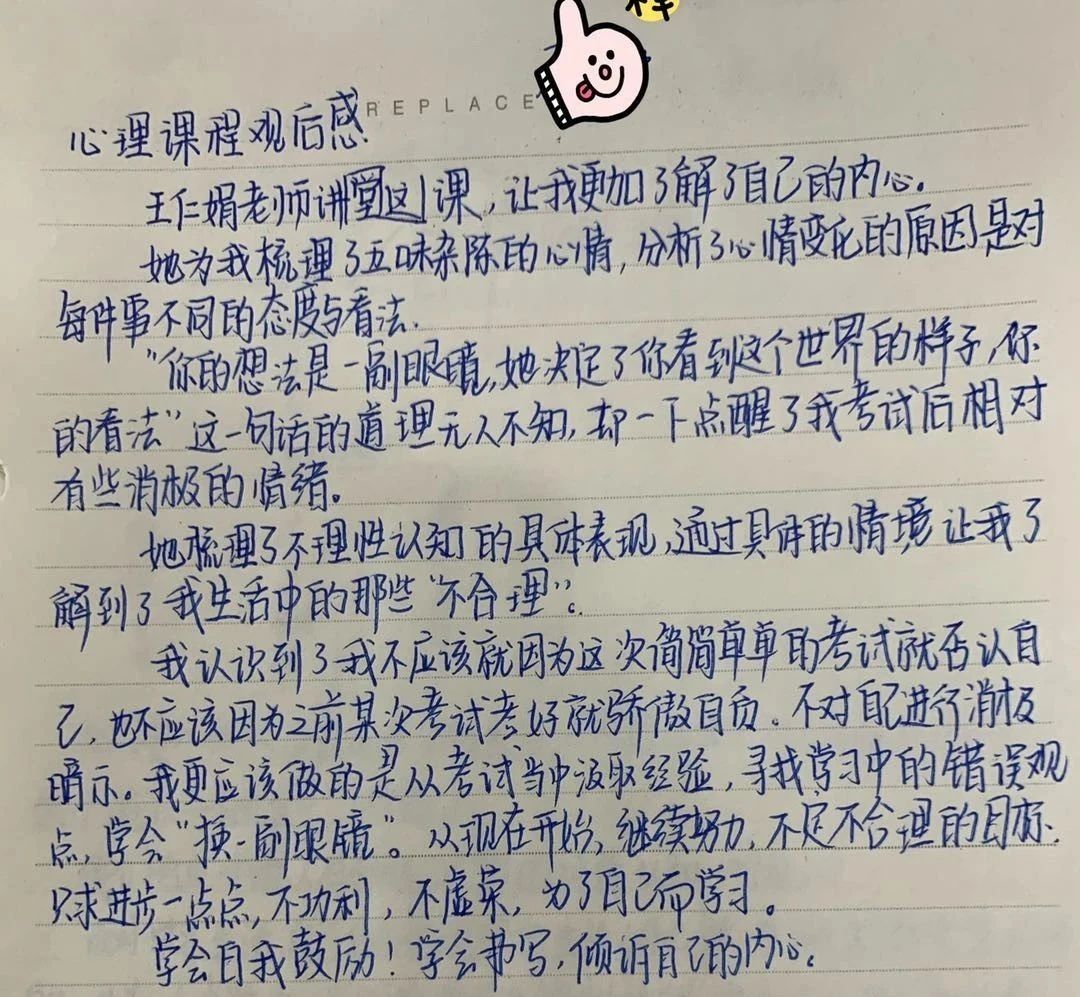 样
REPLACE
心理课程观后感
王仁娟老师讲堂这1课，让我更加了解了自己的内心。
她为我梳理了五味杂陈的心情，分析了心情变化的原因是对
每件事不同的态度与看法.
"你的想法是一副眼镜，她决定了你看到这个世界的样子，你
的看法"这一句话的道理无人不知，却一下点醒了我考试后相对
有些消极的情绪。
她梳理了不理性认知的具体表现，通过具体的情境让我了
解到了我生活中的那些"不合理"。
我认识到了我不应该就因为这次简简单单的考试就否认自
己，也不应该因为之前某次考试考好就骄傲自负。不对自己进行消极
暗示。我更应该做的是从考试当中汲取经验，寻找学习中的错误观
点，学会"换一副眼镜"。从现在开始，继续努力，不定不合理的目标.
只求进步一点点，不功利，不虚荣，为了自己而学习。
学会自我鼓励！学会书写，倾诉自己的内心。